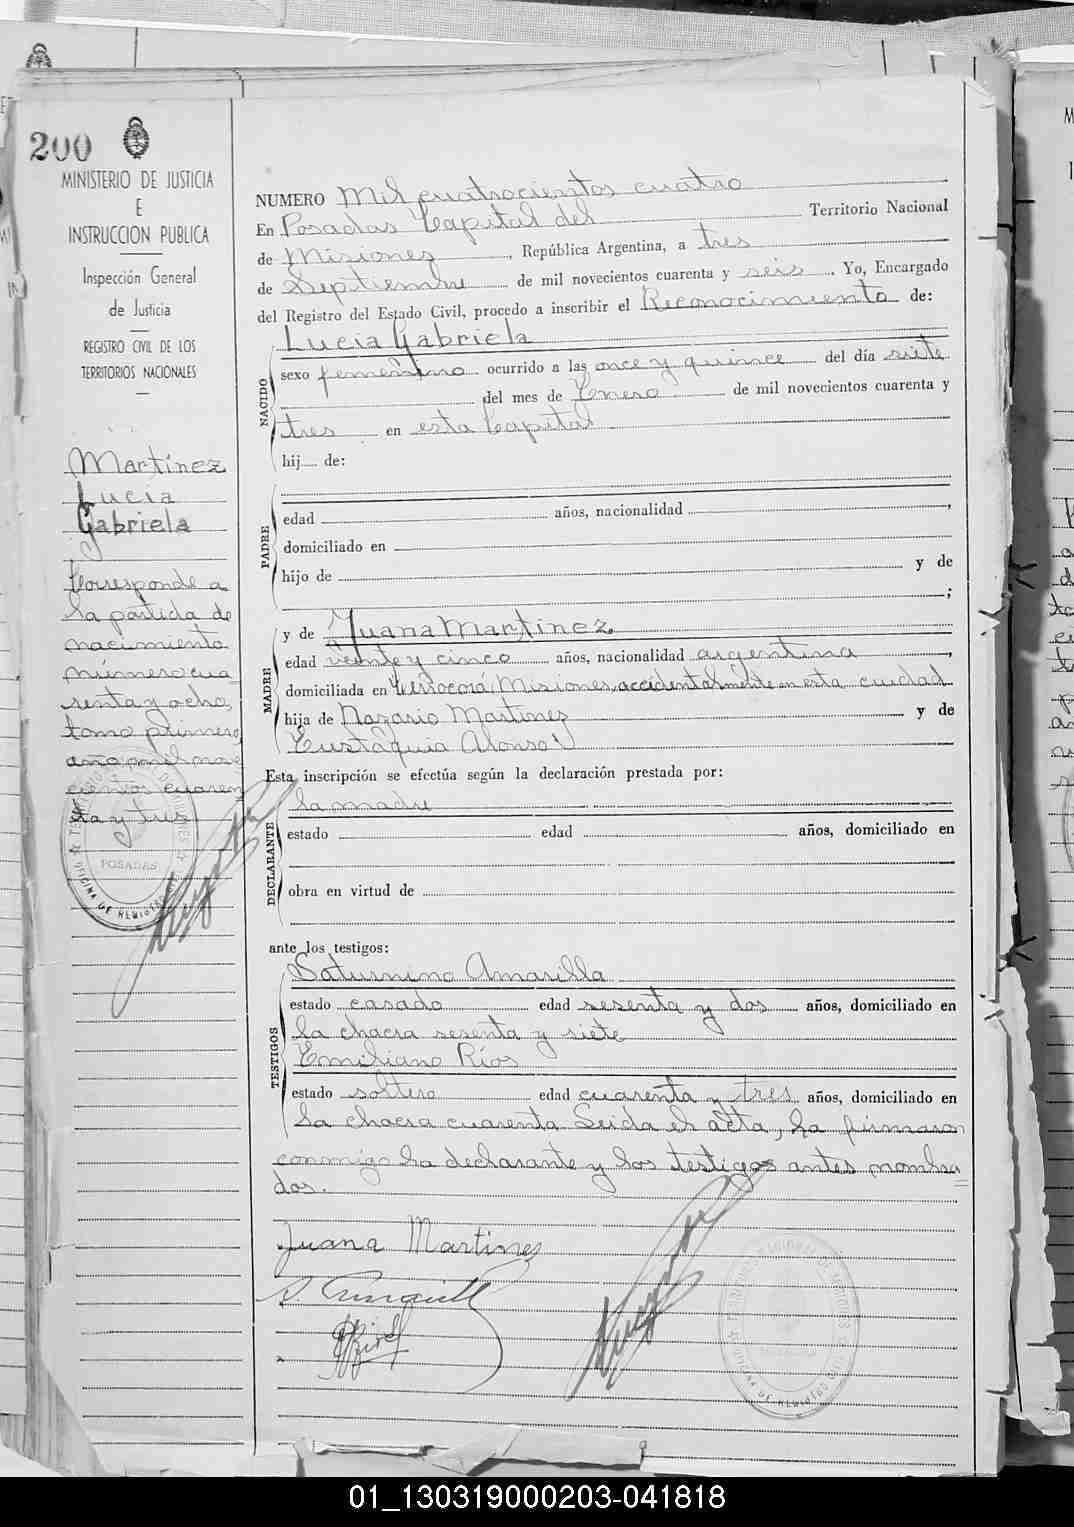 200
MINISTERIO DE JUSTICIA
E
INSTRUCCION PUBLICA
Inspección General
de Justicia
REGISTRO CIVIL DE LOS
TERRITORIOS NACIONALES
Martínez
Lucia
Gabriela
Corresponde a
la partida de
nacimiento
número cua
renta y ocho,
tomo primero,
año mil nove
cientos cuaren
ta y tres
POSADAS
NUMERO Mil cuatrocientos cuatro
En Posadas Capital del Territorio Nacional
de Misiones, República Argentina, a tres
de Septiembre de mil novecientos cuarenta y seis. Yo, Encargado
del Registro del Estado Civil, procedo a inscribir el Reconocimiento de:
NACIDO
Lucia Gabriela
sexo femenino ocurrido a las once y quince del día siete
del mes de Enero de mil novecientos cuarenta y
tres en esta Capital
hij de:
PADRE
edad años, nacionalidad ,
domiciliado en
hijo de y de
;
MADRE
y de Juana Martínez
edad veinte y cinco años, nacionalidad argentina,
domiciliada en Cerrocorá, Misiones, accidentalmente en esta ciudad
hija de Nazario Martínez y de
Eustaquia Alonso
Esta inscripción se efectúa según la declaración prestada por:
DECLARANTE
la madre
estado edad años, domiciliado en
obra en virtud de
ante los testigos:
TESTIGOS
Saturnino Amarilla
estado casado edad sesenta y dos años, domiciliado en
la chacra sesenta y siete
Emiliano Ríos
estado soltero edad cuarenta y tres años, domiciliado en
la chacra cuarenta. Leida el acta, la firmaron
conmigo la declarante y los testigos antes nombra
dos.
Juana Martines
01_130319000203-041818